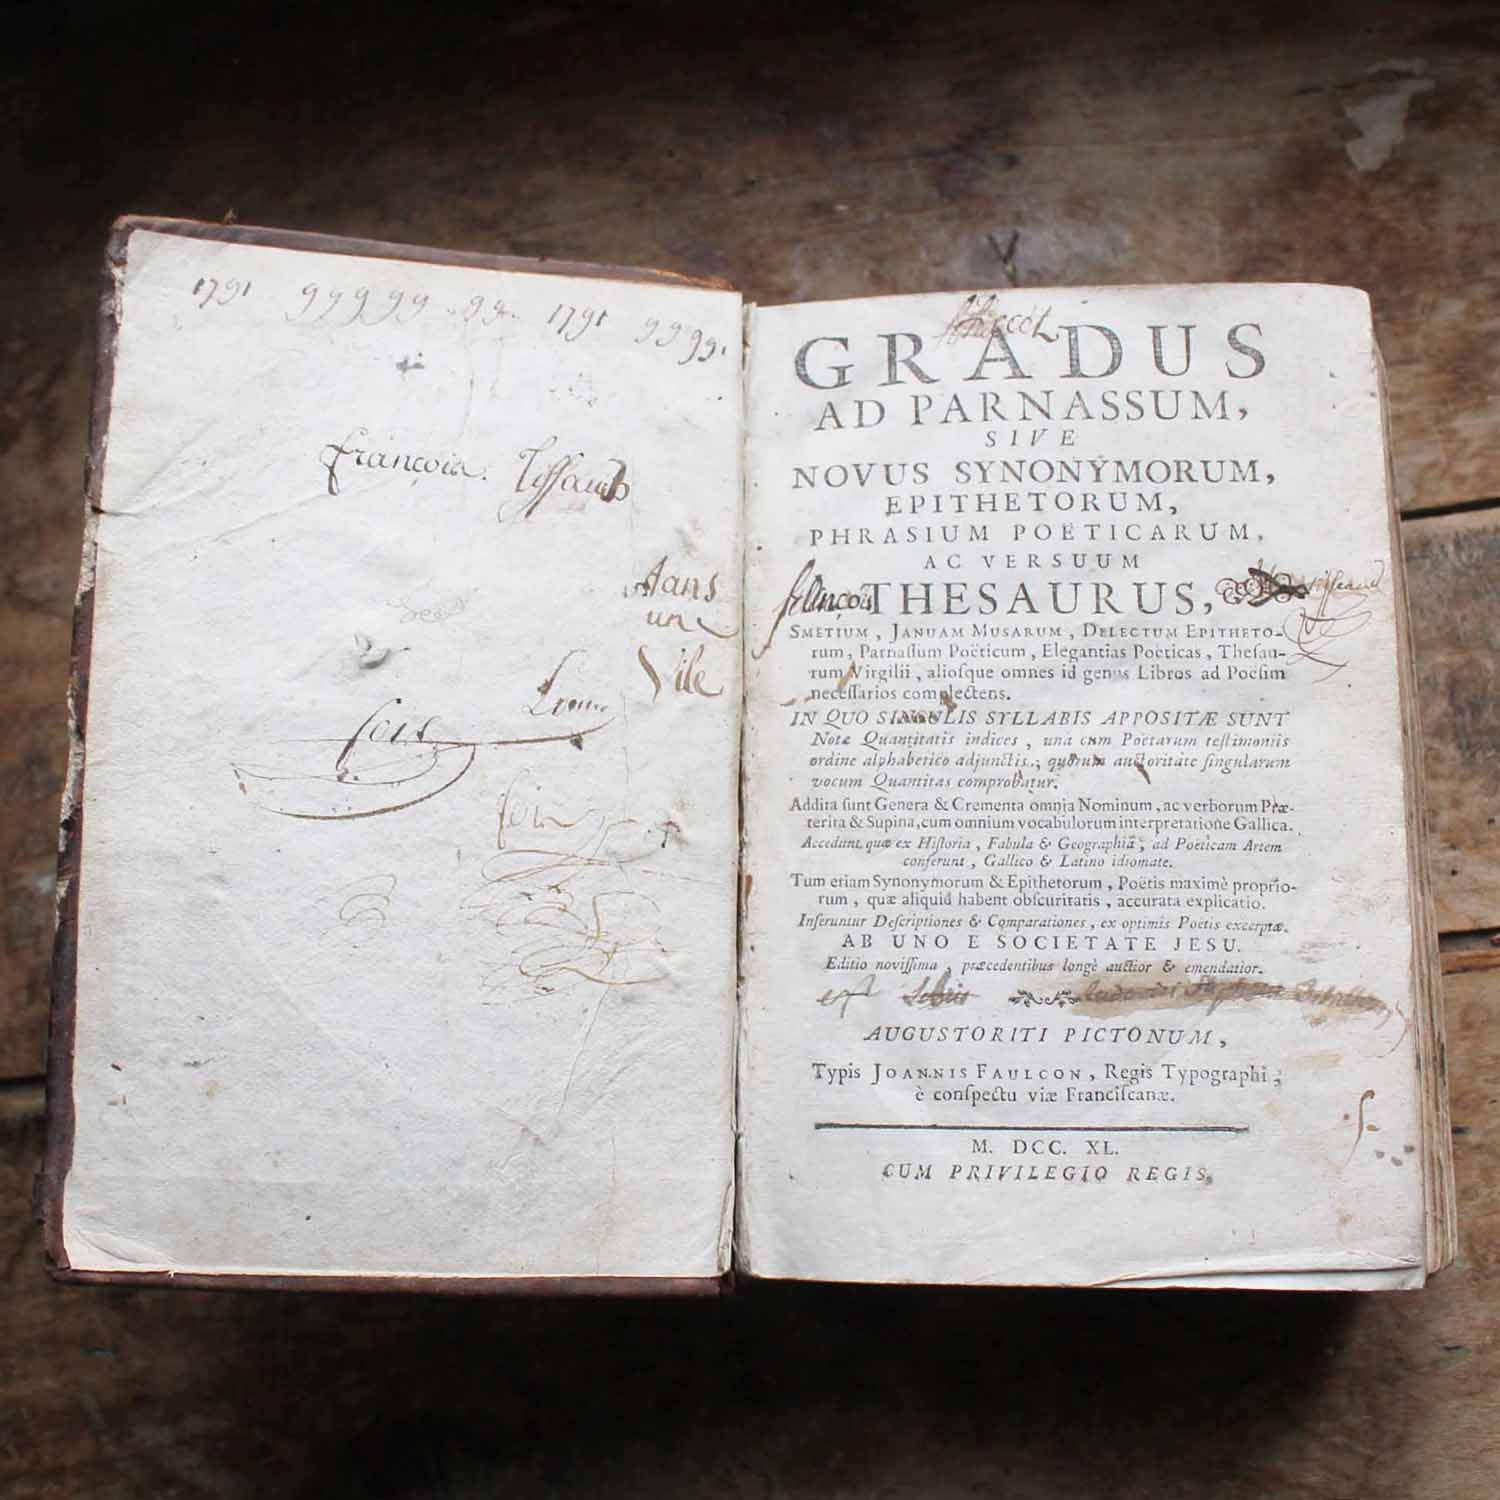 1791 99999 99 1791 9999
françois Tiffaud
dans
un
Vile
fois
GRADUS
AD PARNASSUM,
SIVE
NOVUS SYNONYMORUM,
EPITHETORUM,
PHRASIUM POËTICARUM,
AC VERSUUM
françois THESAURUS,
SMETIUM, JANUAM MUSARUM, DELECTUM EPITHETO-
rum, Parnaſſum Poëticum, Elegantias Poëticas, Theſau-
rum Virgilii, alioſque omnes id genus Libros ad Poëſim
neceſſarios complectens.
IN QUO SINGULIS SYLLABIS APPOSITÆ SUNT
Notæ Quantitatis indices, una cum Poëtarum teſtimoniis
ordine alphabetico adjunctis.; quorum auctoritate ſingularum
vocum Quantitas comprobatur.
Addita ſunt Genera & Crementa omnia Nominum, ac verborum Præ-
terita & Supina, cum omnium vocabulorum interpretatione Gallica.
Accedunt quæ ex Hiſtoria, Fabula & Geographia, ad Poëticam Artem
conferunt, Gallico & Latino idiomate.
Tum etiam Synonymorum & Epithetorum, Poëtis maximè proprio-
rum, quæ aliquid habent obſcuritatis, accurata explicatio.
Inſeruntur Deſcriptiones & Comparationes, ex optimis Poëtis excerptæ.
AB UNO E SOCIETATE JESU.
Editio noviſſima, præcedentibus longè auctior & emendatior.
AUGUSTORITI PICTONUM,
Typis JOANNIS FAULCON, Regis Typographi,
è conſpectu viæ Franciſcanæ.
M. DCC. XL.
CUM PRIVILEGIO REGIS.